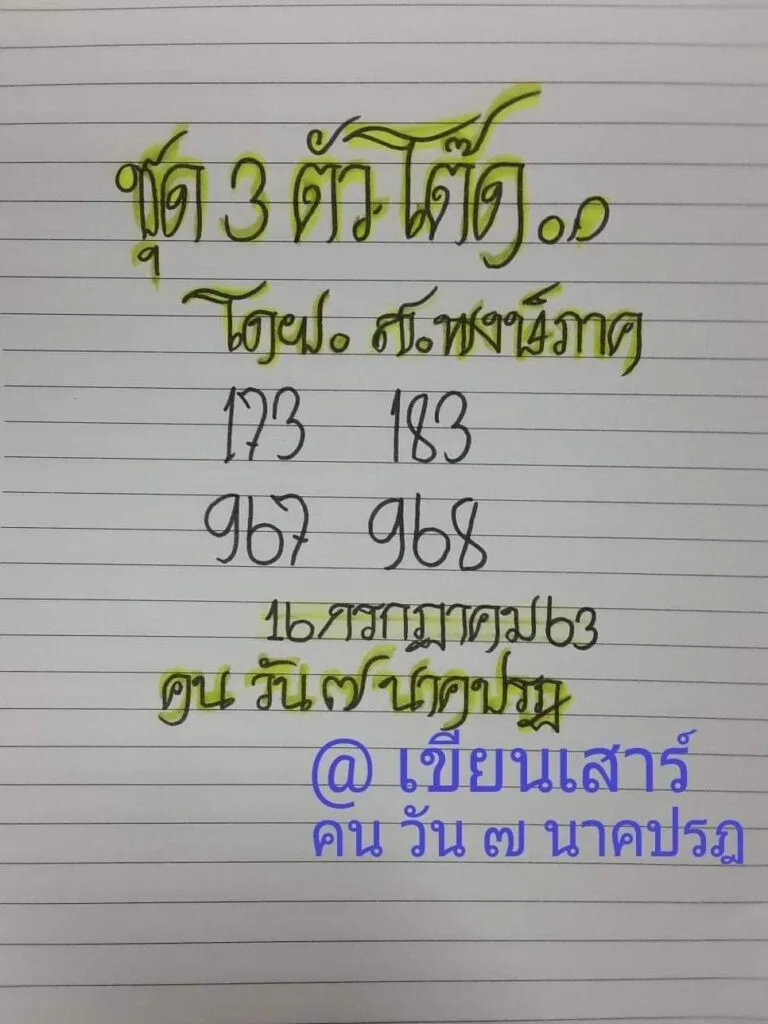 ชุด 3 ตัว โต๊ด..
โดย. ส.พงษ์ภาค
173 183
967 968
16 กรกฎาคม 63
คน วัน ๗ นาคปรฎ
@ เขียนเสาร์
คน วัน ๗ นาคปรฎ